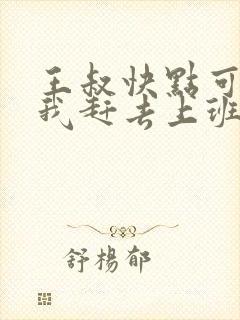 王叔快點可
我赶去上班
舒楊郁